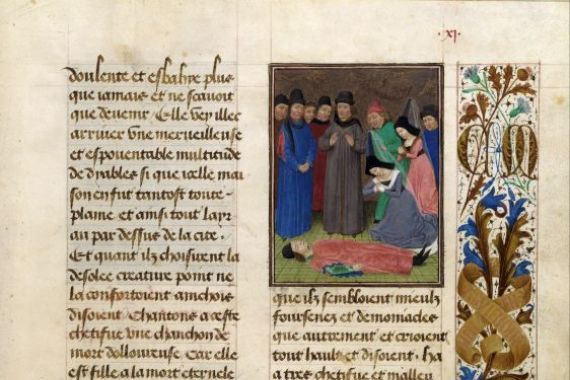 .xi.
doulente et esbahie plus
que iamais et ne scauoit
que deuenir / Elle vey illec
arriuer vne merueilleuse
et espouentable multitude
de dyables si que icelle mai
son en fut tantost toute
plaine et ainsi tout lair
au par dessus de la cite.
Et quant ilz choisirent la
desolee creature point ne
la confortoient ainchois
disoient / Chantons a ceste
chetifue vne chanchon de
mort dolloureuse. Car elle
est fille a la mort eternele
que ilz sembloient mieulz
foursenez et demoniacles
que autrement et crioient
tout hault et disoient. ha
a tres chetifue et malleu